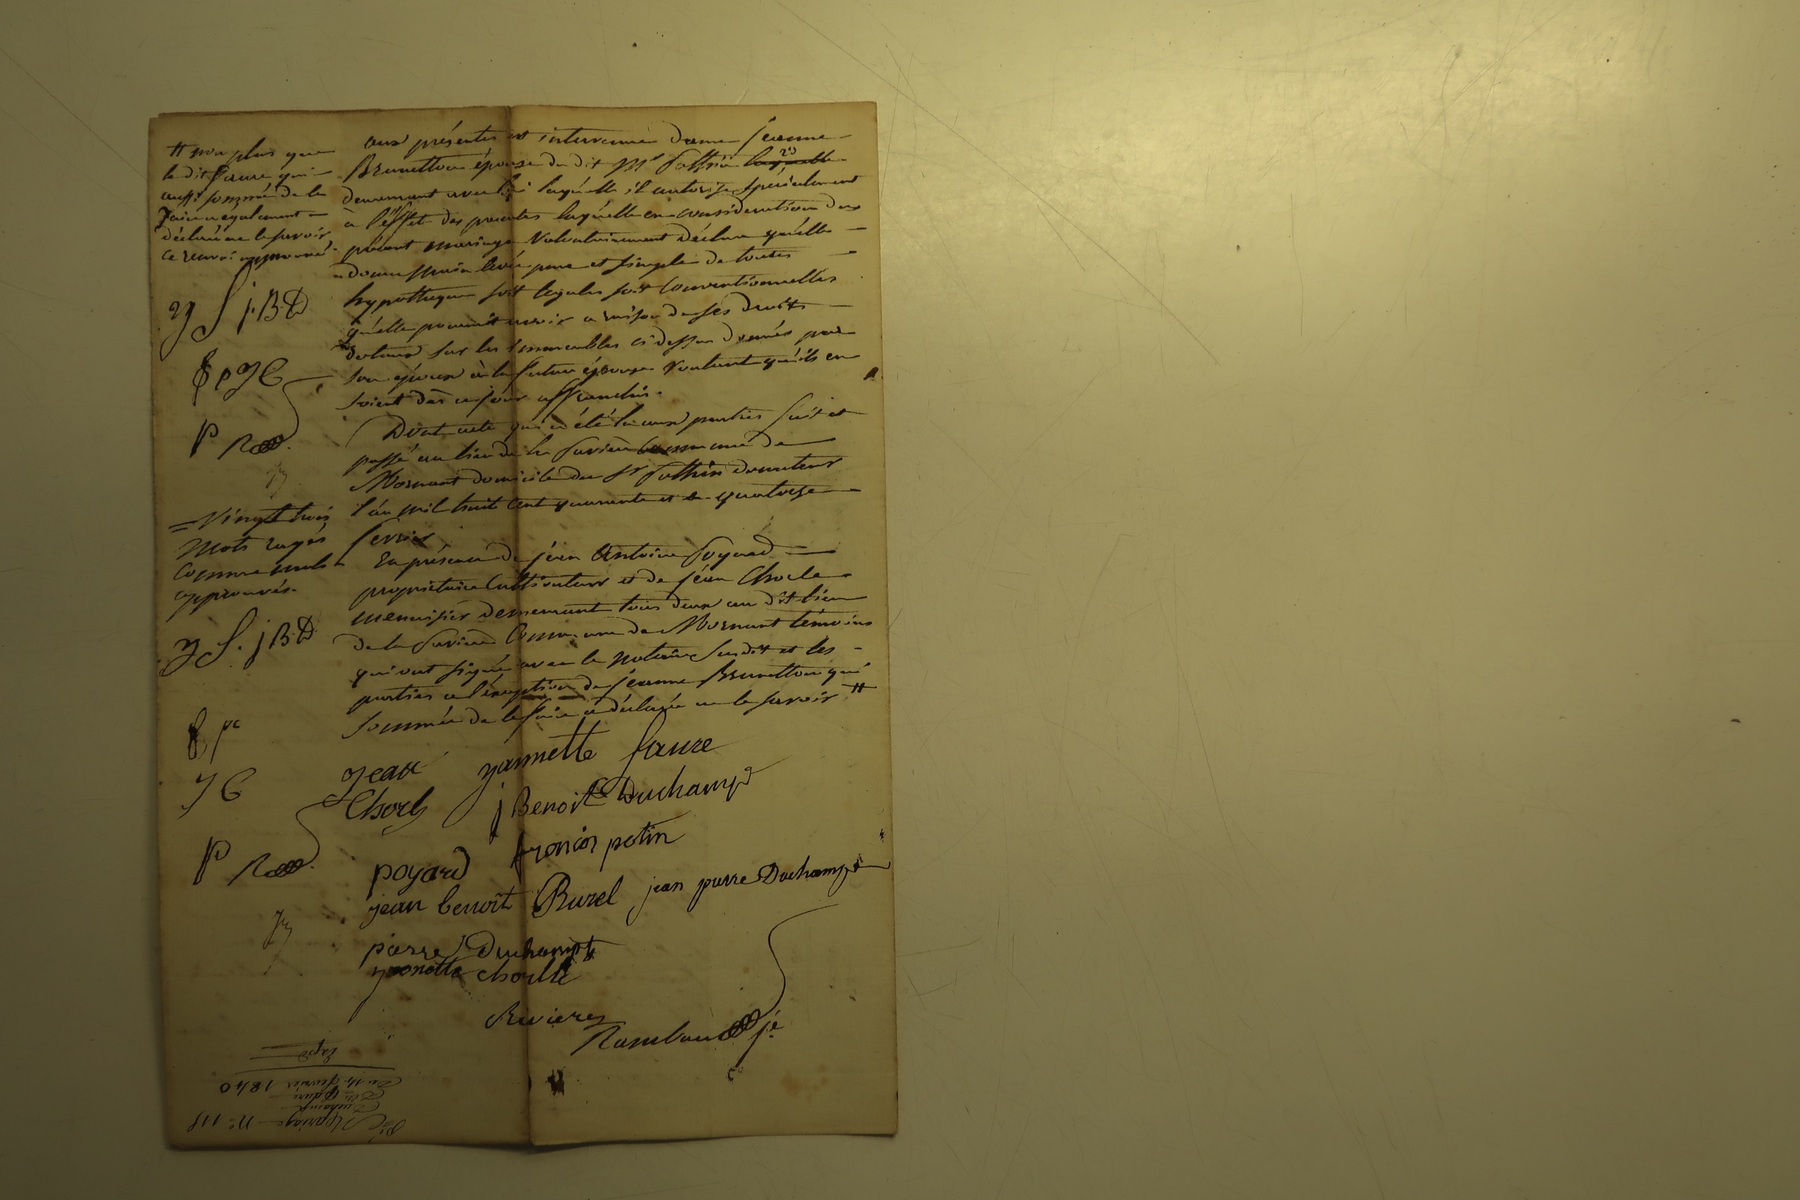 aux présentes est intervenue dame jeanne
Brunetton épouse du dit Mr Pothin laquelle
demeurant avec lui laquelle il autorise spécialement
à l'effet des présentes laquelle en considération du
présent mariage volontairement déclare qu'elle
donne main levée pure et simple de toutes
hypothèques soit légales soit conventionnelles
qu'elle pourrait avoir a raison de ses droits
dotaux sur les immeubles ci dessus donnés par
son époux à la future épouse voulant qu'ils en
soient dès ce jour affranchis.
Dont acte qui a été lu aux parties fait et
passé au lieu de la commune de
Mornant domicile du Sr Pothin donateur
l'an mil huit cent quarante et le quatorze
fevrier
En présence de jean Antoine poyard
propriétaire cultivateur et de jean Chorle
menuisier demeurant tous deux au dit lieu
de la commune de Mornant témoins
qui ont signé avec le notaire susdit et les
parties a l'éxception de jeanne Brunetton qui
sommée de le faire a déclaré ne le savoir #
# non plus que
le dit faure qui
aussi sommé de le
faire a également
déclaré ne le savoir
ce renvoi approuvé.
y f j.B.D
f p JC
P R
= Vingt trois
mots rayés
comme nuls
approuvés.
y f. j B.D
f p
J C
P R
jean yannette faure
Chorle j Benoit Duchamp
francois potin
poyard
jean benoit Burel jean pierre Duchamp
pierre Duchampt
Rivieres
Rambaud
Mariage n° 118
Duchamp
Faure
Du 14 fevrier 1840
Expé